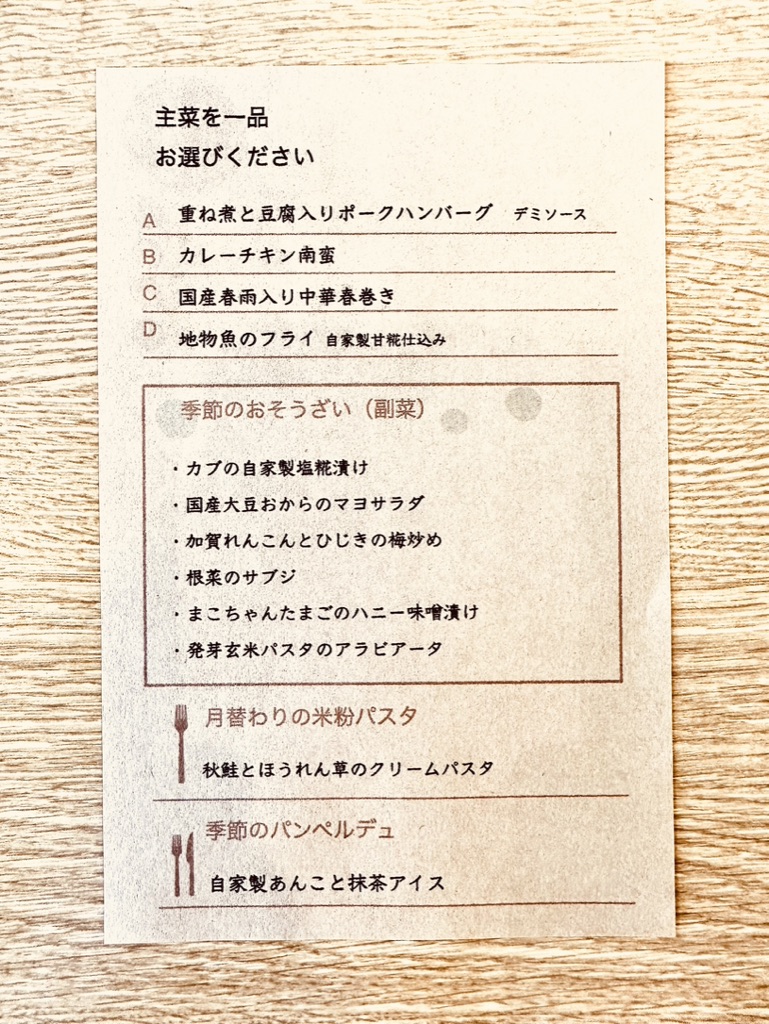 主菜を一品
お選びください
A 重ね煮と豆腐入りポークハンバーグ デミソース
B カレーチキン南蛮
C 国産春雨入り中華春巻き
D 地物魚のフライ 自家製甘糀仕込み
季節のおそうざい（副菜）
・カブの自家製塩糀漬け
・国産大豆おからのマヨサラダ
・加賀れんこんとひじきの梅炒め
・根菜のサブジ
・まこちゃんたまごのハニー味噌漬け
・発芽玄米パスタのアラビアータ
月替わりの米粉パスタ
秋鮭とほうれん草のクリームパスタ
季節のパンペルデュ
自家製あんこと抹茶アイス